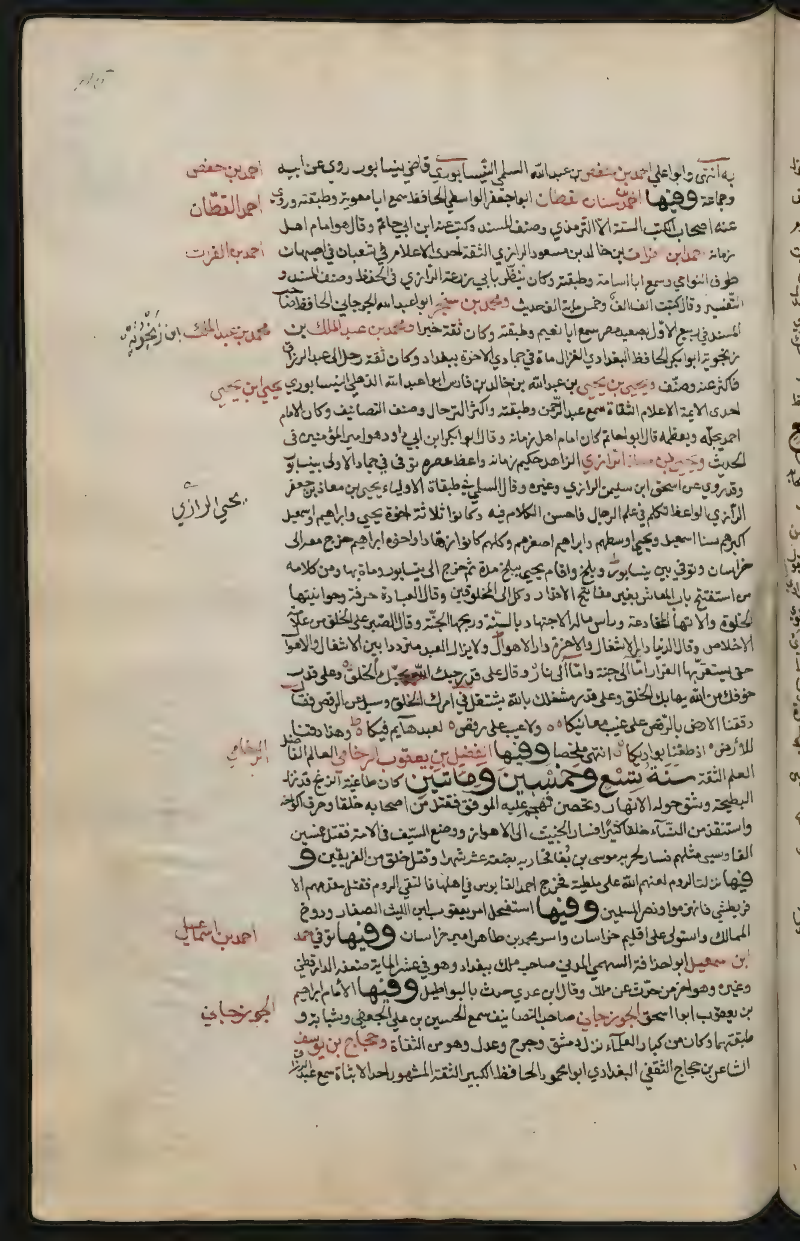 به انتهى وابو علي احمد بن حفص بن عبد الله السلمي النيسابوري قاضي نيسابور روى عن ابيه
احمد بن حفص
وجماعة وفيها احمد بن سنان القطان ابو جعفر الواسطي الحافظ سمع ابا معوية وطبقته وروى
احمد القطّان
عنه اصحاب الكتب الستة الا الترمذي وصنف المسند وكتب عنه ابن ابي حاتم وقال هو امام اهل
زمانه احمد بن الفرات بن خالد بن مسعود الرازي الثقة احدى الاعلام في شعبان في اصبهان
احمد بن الفرت
طوف النواحي وسمع ابا اسامة وطبقته وكان ينظر بابي زرعة الرازي في الحفظ وصنف المسند و
التفسير وقال كتبت الف الف وخمس ماية الف حديث ومحمد بن سنجر ابو عبد الله الجرجاني الحافظ صاحب
المسند في ربيع الاول بصعيد مصر سمع ابا نعيم وطبقته وكان ثقة خيرا ومحمد بن عبد الملك بن
محمد بن عبد الملك ابن زنجويه
زنجوية ابو بكر الحافظ البغدادي الغزال مات في جمادي الاخرة ببغداد وكان ثقة رحل الى عبد الرزاق
فاكثر عنه وصنف ويحيى بن يحيى بن عبد الله بن خالد بن فارس ابو عبد الله الذهلي النيسابوري
يحيى ابن يحيى
احدى الايمة الاعلام الثقاة سمع عبد الرحمن وطبقته واكثر الترحال وصنف التصانيف وكان الامام
احمد يجله ويعظمه قال ابو حاتم كان امام اهل زمانه وقال ابو بكر ابن ابي داود هو امير المؤمنين في
الحديث ويحيى بن معاذ الرازي الزاهد حكيم زمانه واعظ عصره توفى في جماد الاولى بنيسابور
وقد روى عن اسحق ابن سليمن الرازي وغيره وقال السلمي في طبقاة الاولياء يحيى بن معاذ بن جعفر
يحيى الرازي
الرازي الواعظ تكلم في علم الرجال فاحسن الكلام فيه وكانوا ثلاثة اخوة يحيى وابراهيم واسمعيل
اكبرهم سنا اسمعيل ويحيى اوسطهم وابراهيم اصغرهم وكلهم كانوا زهادا واخوه ابراهيم خرج معه الى
خراسان وتوفى بين نيسابور وبلخ واقام يحيى ببلخ مدة ثم خرج الى نيسابور ومات بها ومن كلامه
من استفتح باب المعاش بغير مفاتيح الاقدار وكل الى المخلوقين وقال العبادة حرفة وحوانيتها
الخلوة والاتها المخادعة ورأس مالها الاجتهاد بالسنة وربحها الجنة وقال الصبر على الخلق من علامة
الاخلاص وقال الدنيا دار الاشغال والاخرة دار الاهوال ولا يزال العبد مترددا بين الاشغال والاهوال
حتى يستقر بها القرار اما الى جنة واما الى نار وقال على قدر حبك الله يحبك الخلق وعلى قدر
خوفك من الله يهابك الخلق وعلى قدر شغلك بالله يشتغل في امرك الخلق وسيل عن الرقص فقال
دققنا الارض بالرقص على غيب معانيكا ولا عيب على رقص لعبد هايم فيكا وهذا دقنا
للارض اذ طفنا بواديكا انتهى ملخصا وفيها الفضيل بن يعقوب الرخامي العالم الفاضل
الرخامي
العلم الثقة سنة تسع وخمسين وماتين كان طاغية الزنج قد نزل
البطيحة وشق حوله الانهار وتحصن فهجم عليه الموفق فقتل من اصحابه خلقا وحرق اكواخه
واستنقذ من النساء خلقا كثيرا فسار الخبيث الى الاهواز ووضع السيف في الامة فقتل خمسين
الفا وسبى مثلهم فسار لحربه موسى بن بغا فحاربه بضعة عشر شهرا وقتل خلق من الفريقين و
فيها نزلت الروم لعنهم الله على ملطية فخرج احمد القابوس في اهلها فالتقى الروم فقتل مقدمهم الا
قريطشي فانهزموا ونصر المسلمين وفيها استفحل امر يعقوب ابن الليث الصفار ودوخ
الممالك واستولى على اقليم خراسان واسر محمد بن طاهر امير خراسان وفيها توفي احمد
احمد بن اسماعيل
ابن سمعيل ابو احذافة السهمي المدني صاحب ملك ببغداد وهو في عشر الماية ضعفه الدارقطني
وغيره وهو اخر من حدث عن ملك وقال ابن عدي حدث بالبواطيل وفيها الامام ابراهيم
بن يعقوب ابو اسحق الجوزجاني صاحب التصانيف سمع الحسين بن علي الجعفي وشبابة و
الجوزجاني
طبقتهما وكان من كبار العلماء نزل دمشق وجرح وعدل وهو من الثقاة وحجاج بن يوسف
الشاعر بن حجاج الثقفي البغدادي ابو محمد الحافظ الكبير الثقة المشهور احد الاثباة سمع عبد الرزاق